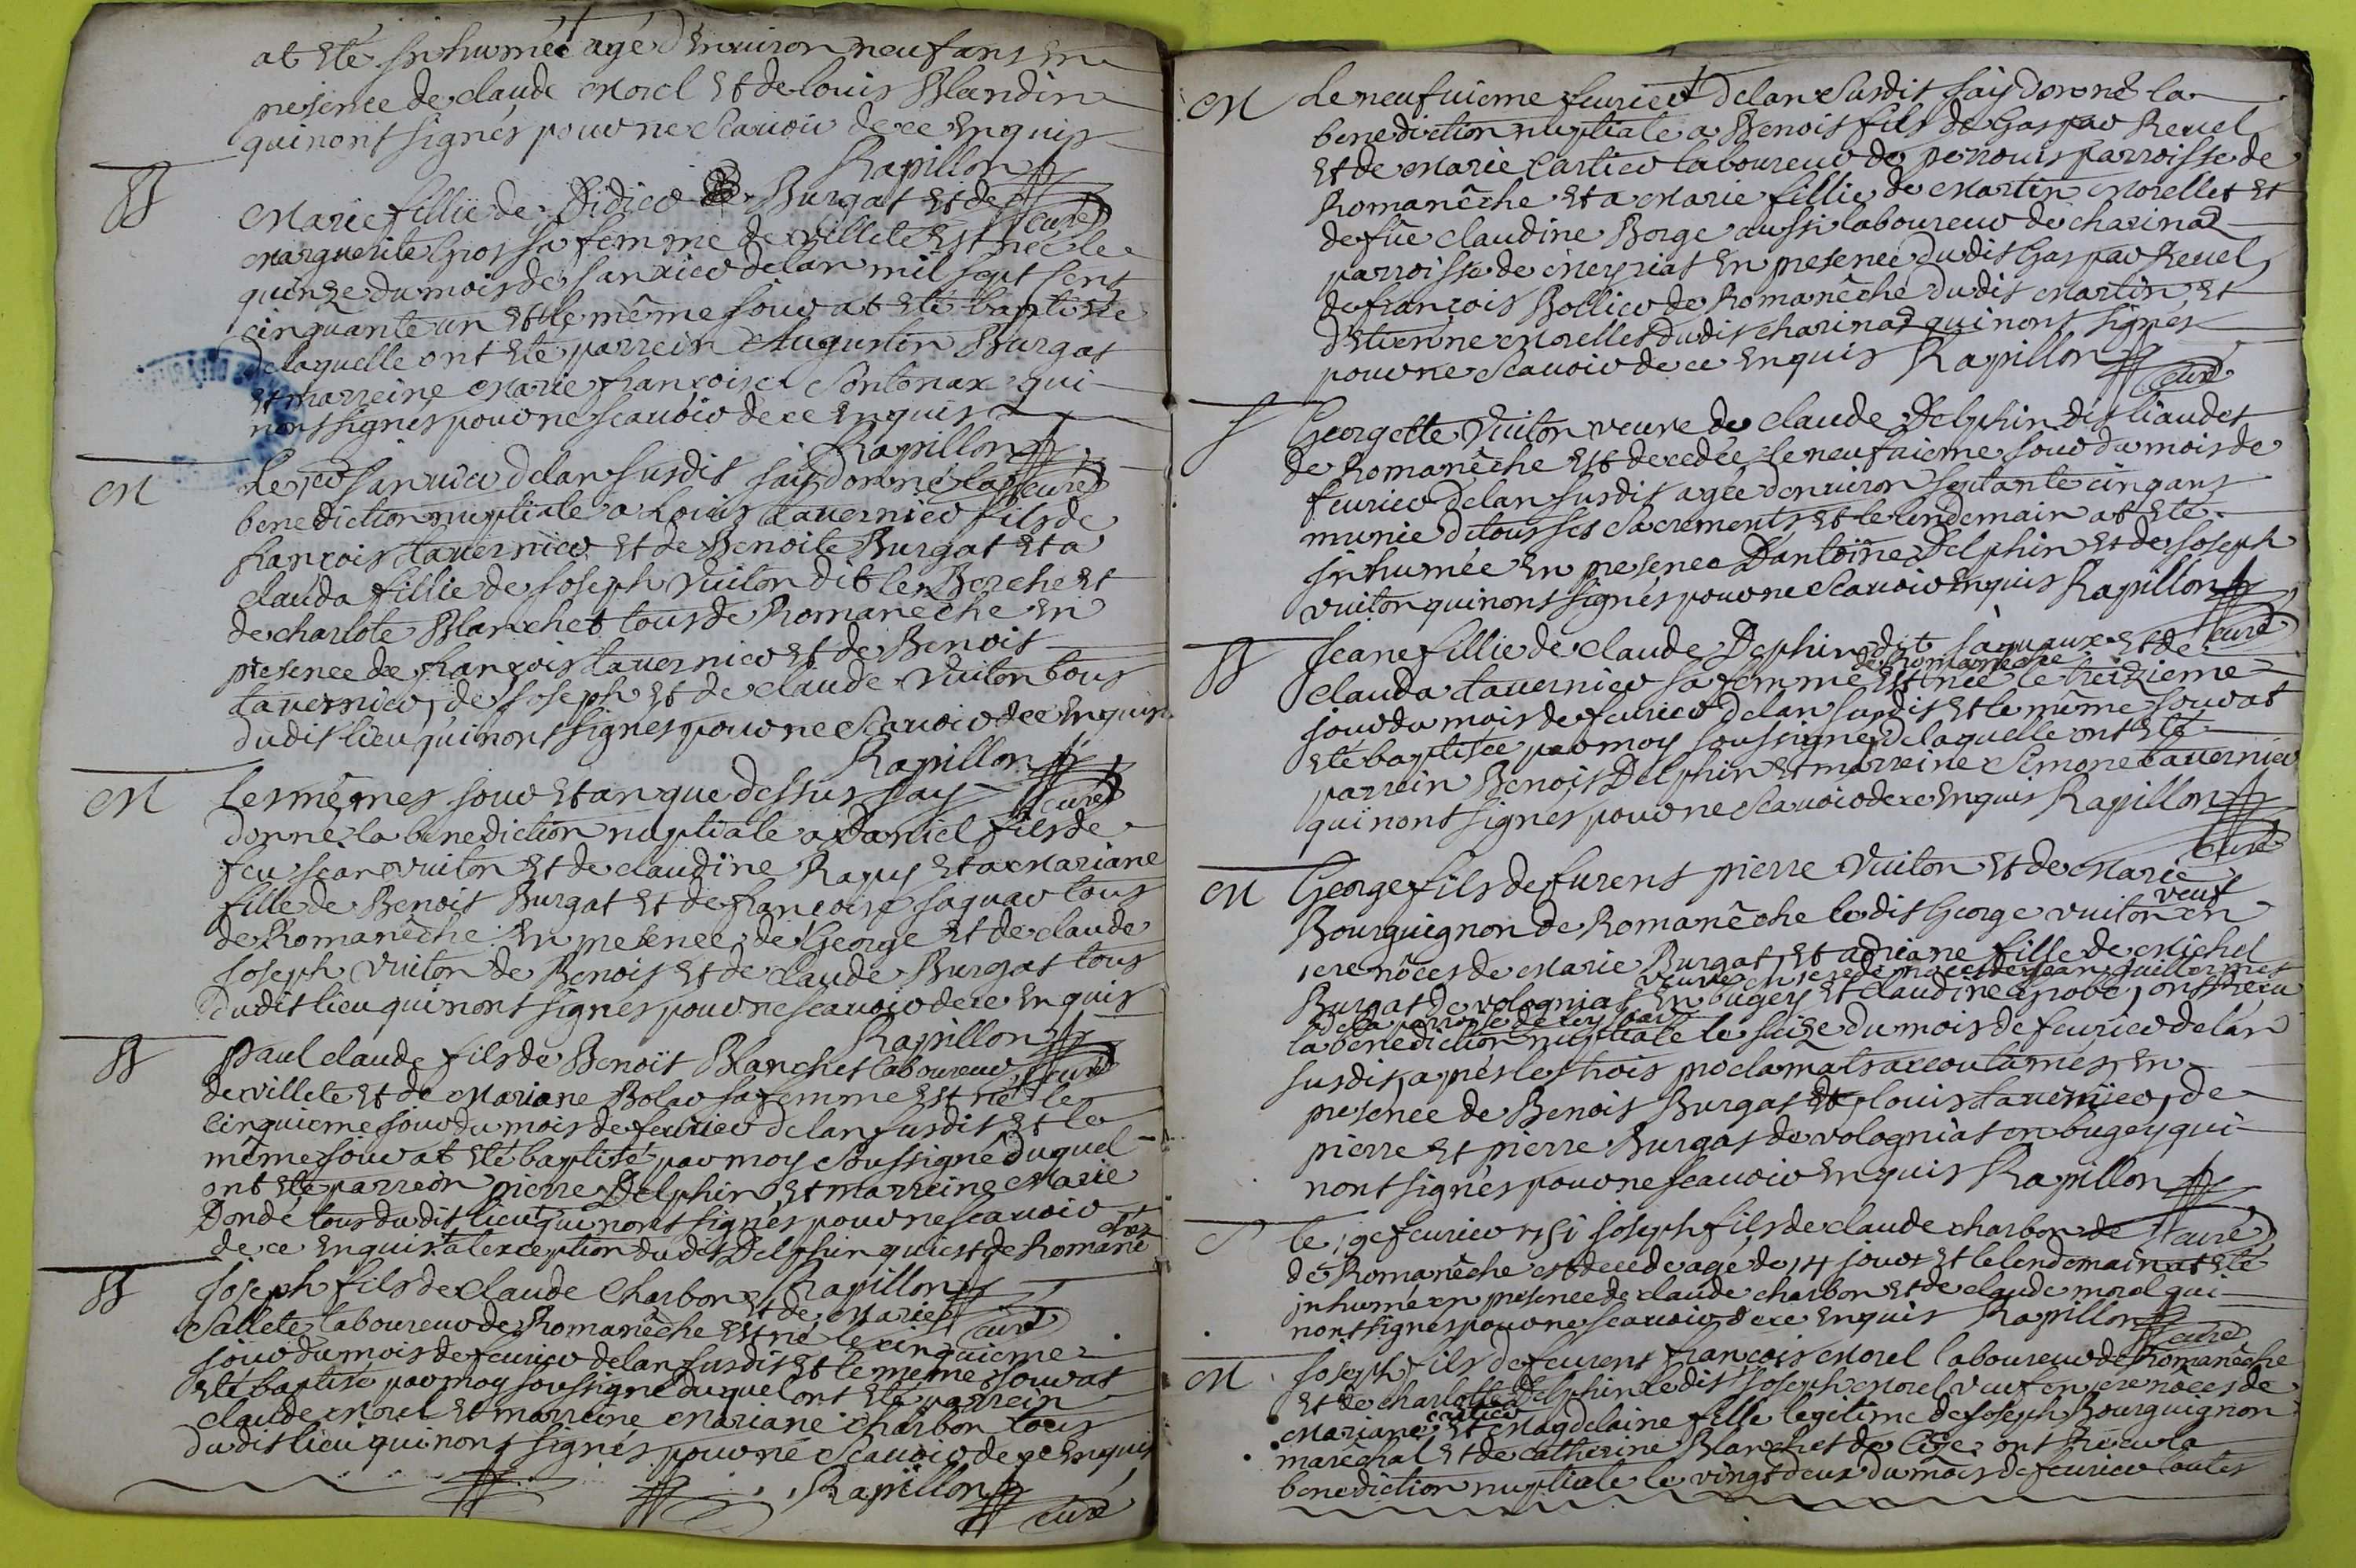 at eté inhumé agé denviron neuf ans en
presence de claude Morel et de louis Blandin
qui n'ont signés pour ne scavoir de ce enquis
Rapillon
curé
B
Marie fillie de Didier Burgat et de
Marguerite Gros sa femme de villete est neé le
quinze du mois de Janvier de lan mil sept sent
cinquante un et le même jour at eté baptisée
de laquelle ont eté parrein Augustin Burgat
et marreine Marie françoise Sontonax qui
n'ont signés pour ne scavoir de ce enquis
Rapillon
curé
M
Le Janvier de lan susdit jay donné la
benediction nuptiale a Louis tavernier fils de
françois tavernier et de Benoite Burgat et a
clauda fillie de Joseph vuiton dit le Borche et
de charlote Blanchet tous de Romanêche en
presence de françois tavernier et de Benoit
tavernier, de Joseph et de claude vuiton tous
dudit lieu qui n'ont signés pour ne scavoir de ce enquis
Rapillon
curé
M
Les mêmes jour et an que dessus jay
donné la benediction nuptiale a Daniel fils de
feu jean vuiton et de claudine Rapy et a Mariane
fille de Benoit Burgat et de françoise jaquar tous
de Romanêche en presence de George et de claude
Joseph vuiton de Benoit et de claude Burgat tous
dudit lieu qui n'ont signés pour ne scavoir de ce enquis
Rapillon
curé
B
paul claude fils de Benoit Blanchet laboureur
de villete et de Mariane Bolar sa femme est né le
cinquieme jour du mois de fevrier de lan susdit et le
même jour at eté baptisé par moy soussigné duquel
ont eté parrein pierre Delphin et marreine Marie
Donde tous dudit lieu qui n'ont signés pour ne scavoir
de ce enquis a lexception dudit Delphin qui est de Romanê
che
B
Joseph fils de claude Charbon et de Marie
Rapillon
curé
Sallete laboureur de Romanêche est né le cinquieme
jour du mois de fevrier de lan susdit et le même jour at
eté baptisé par moy soussigné duquel ont eté parrein
claude Morel et marreine Mariane charbon tous
dudit lieu qui n'ont signés pour ne scavoir de ce enquis
Rapillon
curé
M
Le neufuieme fevrier de lan susdit jay donné la
benediction nuptiale a Benoit fils de Gaspar Revel
et de Marie Cartier laboureur de penouis parroisse de
Romanêche et a Marie fillie de Martin Morellet et
de fûe claudine Borge aussi laboureur de charinaz
parroisse de Meyriat en presence dudit Gaspar Revel
de françois Bollier de Romanêche dudit Martin et
d'Etienne Morellet dudit charinaz qui n'ont signés
pour ne scavoir de ce enquis Rapillon
curé
S
Georgette vuiton veuve de claude Delphin dit liaudet
de Romanêche est decedée le neufuieme jour du mois de
fevrier de lan susdit agée denviron septante cinq ans
munie de tous ses sacrements et le lendemain at eté
inhumée en presence Dantoine Delphin et de Joseph
vuiton qui n'ont signés pour ne scavoir enquis Rapillon
curé
B
Jeane fillie de claude Dephin dit jaquaux et de
de Romanêche
clauda tavernier sa femme est neé le treizieme
jour du mois de fevrier de lan susdit et le même jour at
eté baptisée par moy soussigné de laquelle ont eté
parrein Benoit Delphin et marreine Simone tavernier
qui n'ont signés pour ne scavoir de ce enquis Rapillon
curé
M
George fils de furent pierre vuiton et de Marie
Bourguignon de Romanêche ledit George vuiton veuf en
1ere nôces de Marie Burgat, et adriane fille de Michel
veuve en 1ere de noces de jean guillermet
Burgat de vologniat en bugey et claudine grobe, ont recu
de la parroisse de
la benediction nuptiale le seize du mois de fevrier de lan
susdit, apres les trois proclamats accoutumés, en
presence de Benoit Burgat et louis tavernier, de
pierre et pierre Burgat de volognat en bugey qui
n'ont signés pour ne scavoir enquis Rapillon
curé
S
le 19e fevrier 1751 joseph fils de claude charbon de
de Romanêche est decedé agé de 14 jours et le lendemain at eté
inhumé en presence de claude charbon et de claude morel qui
n'ont signés pour ne scavoir de ce enquis Rapillon
curé
M
Joseph fils de feurent françois Morel laboureur de Romanêche
et de charlotte Delphin ledit Joseph Morel veuf en 1ere nôces de
Mariane et Magdelaine fille legitime de Joseph Bourguignon
maréchal et de catherine Blanchet de Cize ont recu la
benediction nuptiale le vingt deux du mois de fevrier toutes